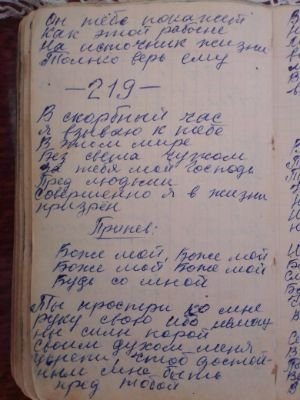 Он тебе покажет
Как этой рабыне
На источник жизни
Только верь ему
— 219 —
В скорбный час
я взываю к тебе
В этом мире
Без света чужом
За тебя мой господь
Пред людьми
Совершенно я в жизни
призрен
Припев:
Боже мой, Боже мой
Боже мой Боже мой
Будь со мной
Ты простри ко мне
руку свою ибо
ны силы порой
Своим духом меня
укрепи, чтоб достой-
ным мне быть
пред тобой